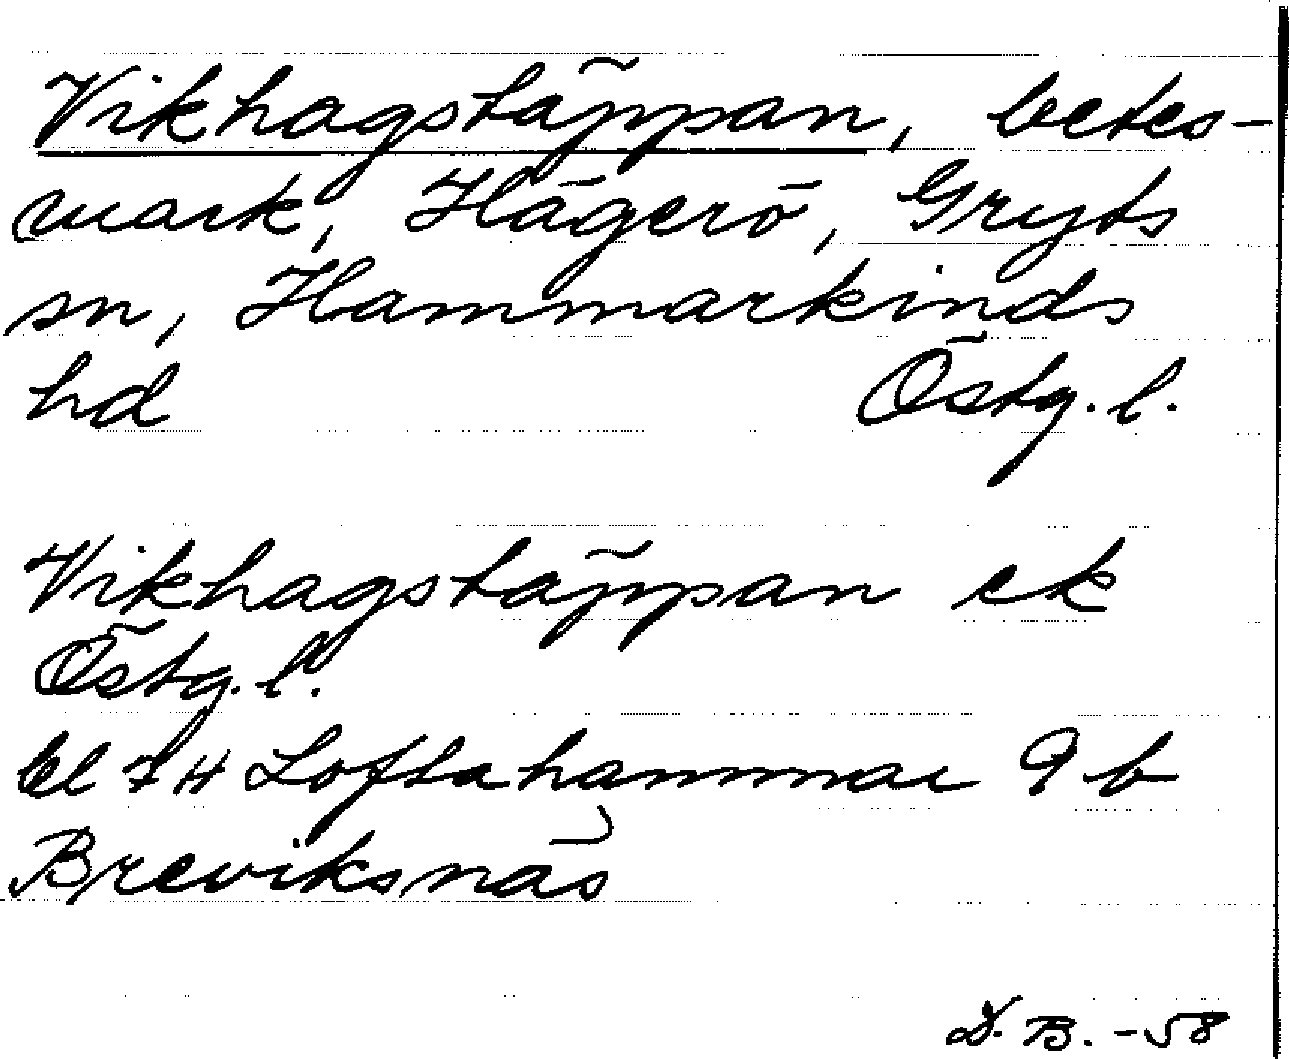 Vikhagstäppan, betes-
mark, Hägerö, Gryts
sn, Hammarkinds
hd Östg. l.
Vikhagstäppan ek
Östg. l.
bl 7H Loftahammar 9 b
Breviksnäs
D. B. -58